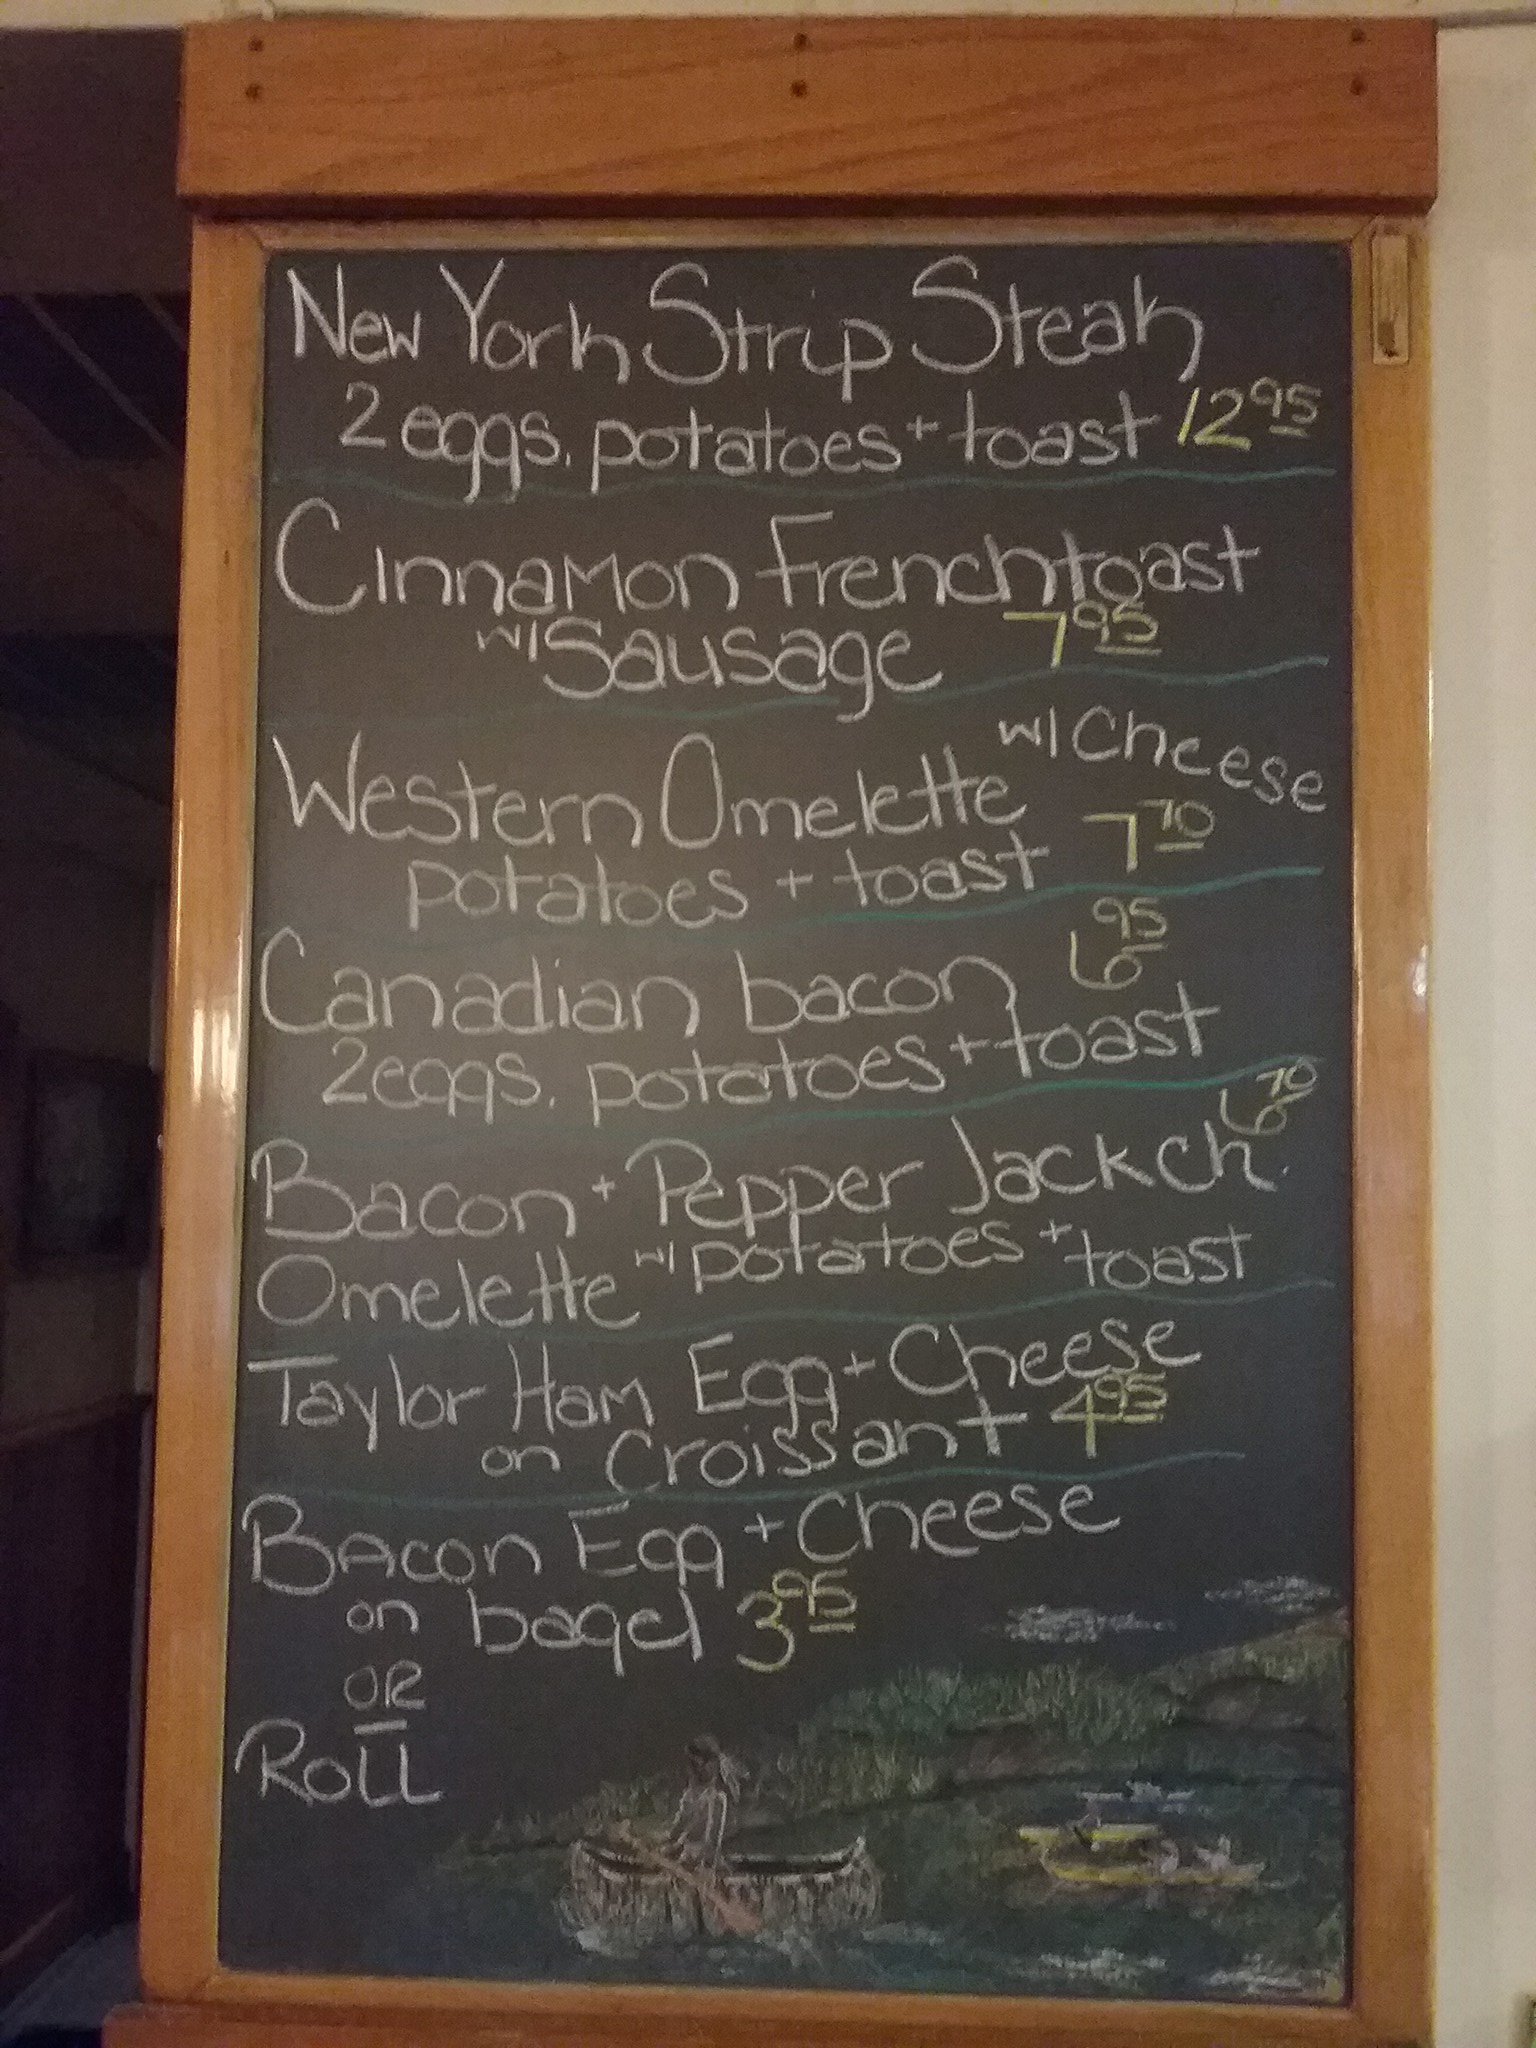 New York Strip Steak
2 eggs. potatoes + toast 12 95
Cinnamon Frenchtoast
w/ Sausage 7 95
Western Omelette w/ Cheese
potatoes + toast 7 70
Canadian bacon 6 95
2 eggs. potatoes + toast
Bacon + Pepper Jack ch. 6 70
Omelette w/ potatoes + toast
Taylor Ham Egg + Cheese
on Croissant 4 95
Bacon Egg + Cheese
on bagel 3 95
OR
Roll